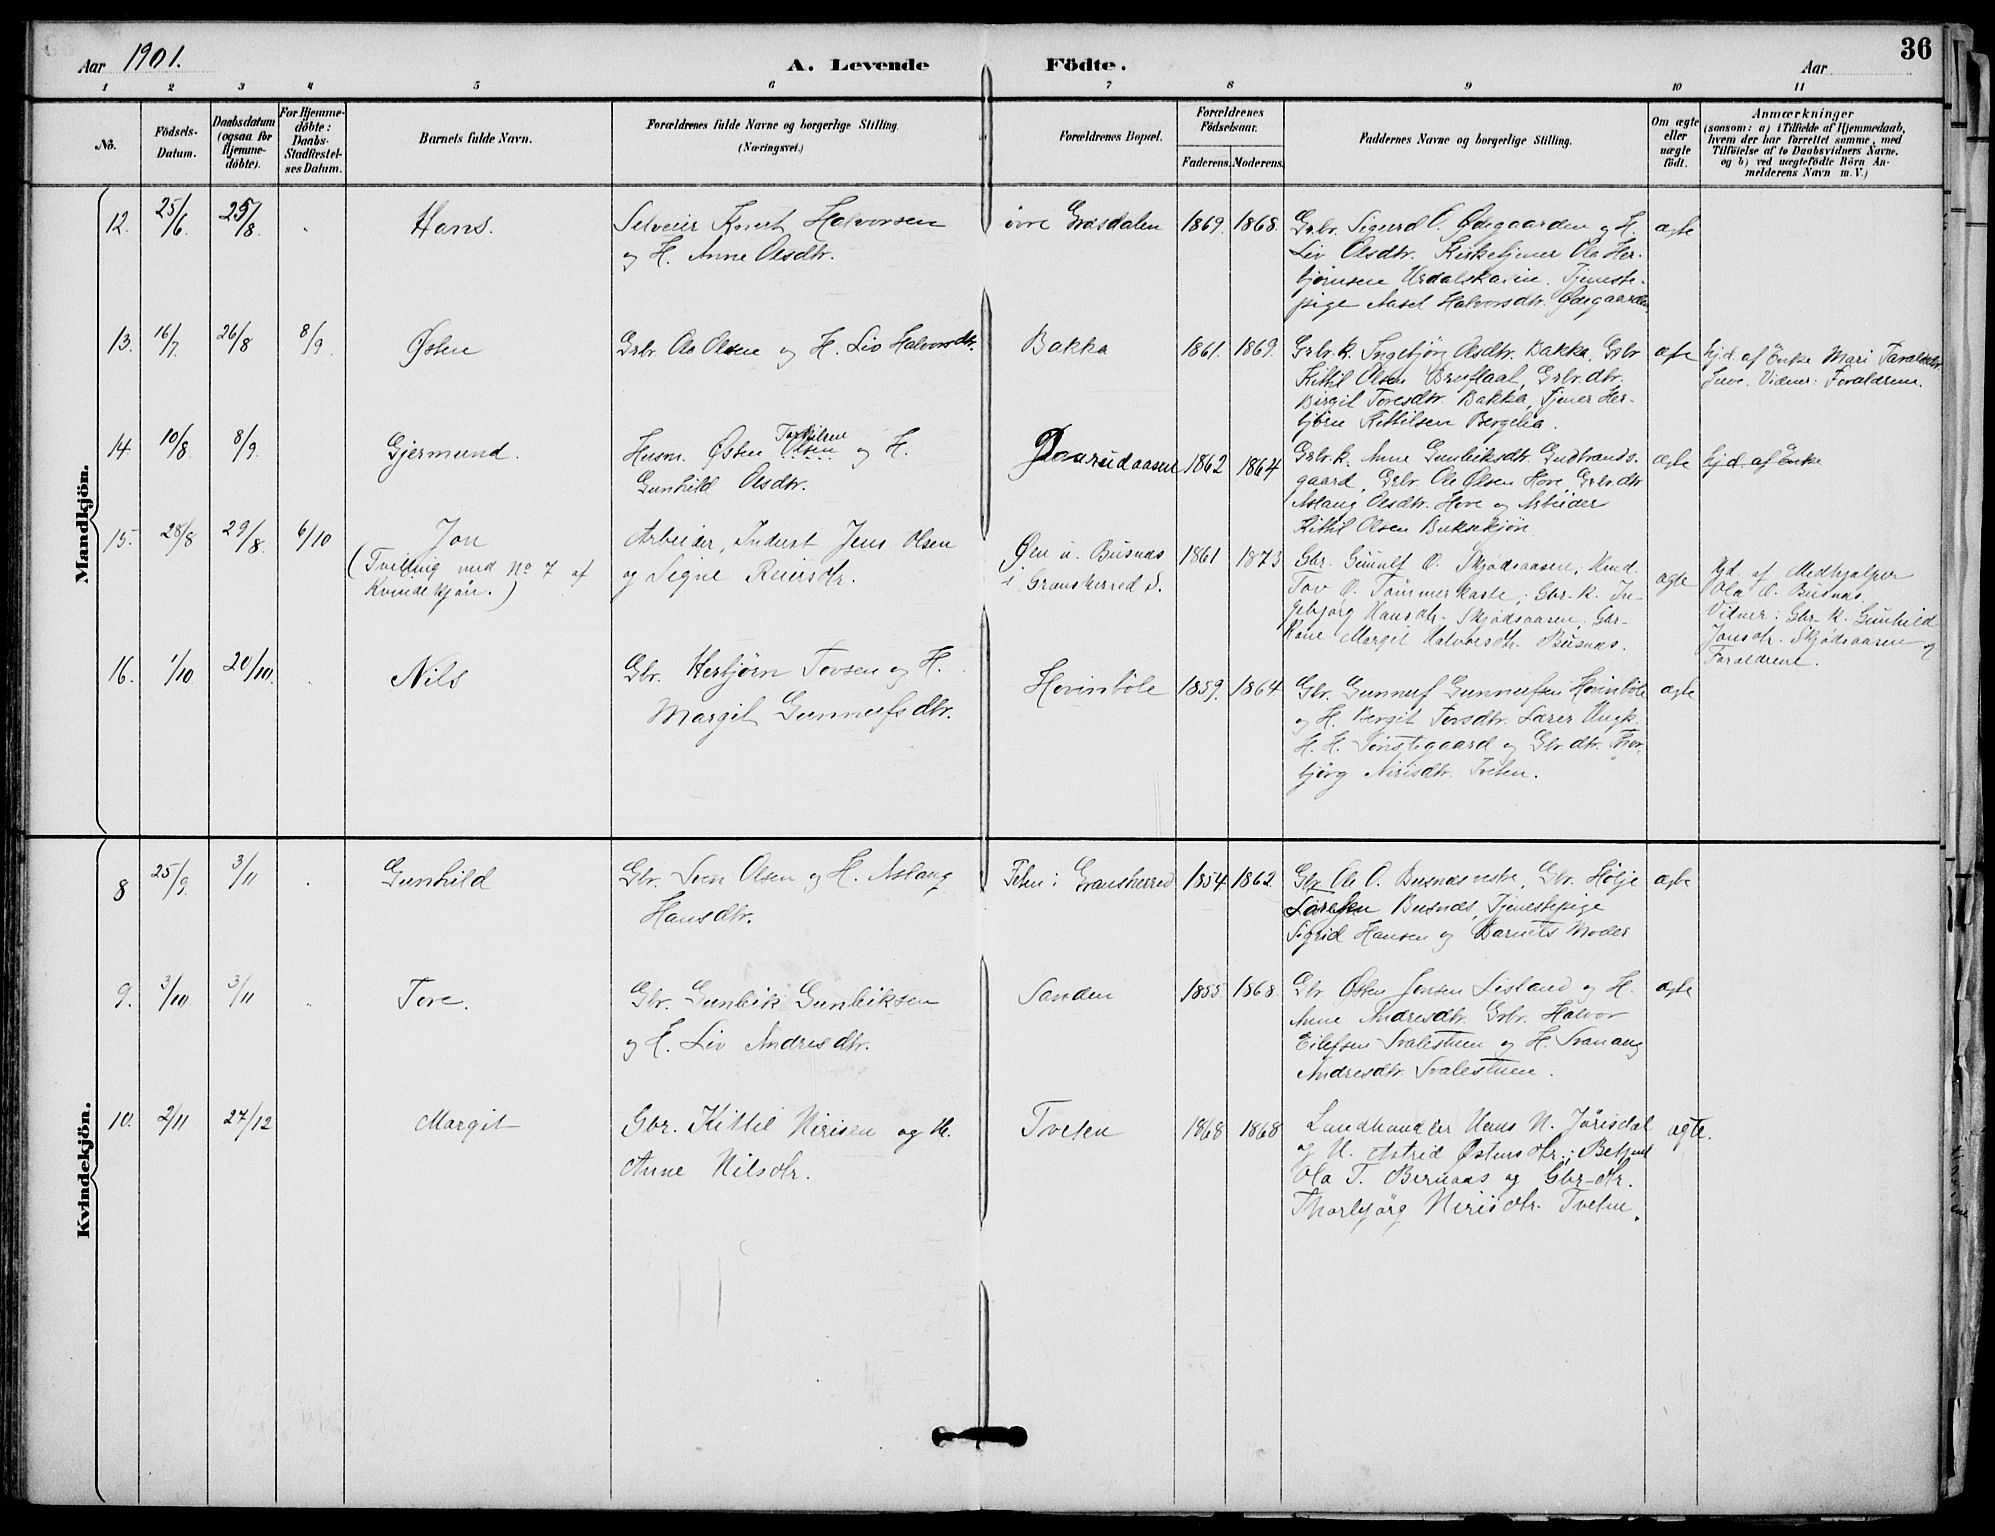 36
Aar 1901.
A. Levende Födte.
Aar
1 2 3 4 5 6 7 8 9 10 11
No.
Födsels-Datum.
Daabsdatum (ogsaa for Hjemme-döbte).
For Hjemme-döbte: Daabs-Stadfæstel-ses Datum.
Barnets fulde Navn.
Forældrenes fulde Navne og borgerlige Stilling.
(Næringsvei.)
Forældrenes Bopæl.
Forældrenes Födselsaar.
Faderens. Moderens.
Faddernes Navne og borgerlige Stilling.
Om ægte eller uægte födt.
Anmærkninger
(saasom: a) i Tilfælde af Hjemmedaab,
hvem der har forrettet samme, med
Tilföielse af to Daabsvidners Navne,
og b) ved uægtefödte Börn An-
melderens Navn m. V.)
Mandkjön.
12. 25/6 25/8 " Hans.
Selveier Knut Halvorsen
og H. Anne Olsdtr.
övre Grosdalen 1869. 1868.
Grbr. Sigurd O. Ødegaarden og H.
Liv Olsdtr. Kirketjener Ola Her-
bjørnsen Urdalskaasa. Tjeneste-
pige Aasel Halvorsdtr. Ødegaarden
ægte
13. 16/7. 26/8 8/9. Østen
Grbr. Ola Olsen og H. Liv Halvorsdtr.
Bakka 1861. 1869.
Grbr.k. Ingebjörg Olsdtr. Bakka, Grbr
Kittil Olsen Brosflaat, Grbr.dtr.
Birgit Toresdtr. Bakka, Tjener Her-
björn Kittilsen Bergelia.
ægte
hjd. af Enke Mari Taraldsdtr.
Vidner: Forældrene.
14. 10/8. 8/9. Gjermund.
Husm. Østen Olsen og H.
Gunhild Olsdtr.
1862 1864
Grbr.k. Anne Gunleiksdtr. Gudbrands-
gaard, Grbr. Ole Olsen Hove, Grbr.dtr
Aslaug Olsdtr. Hove og Arbeider
Kittil Olsen Buksekjön
ægte
hjd. af Enke
15. 28/8 29/8. 6/10 Jon
(Tvilling med No 7 af
Kvindekjön.)
Arbeider, Inderst Jens Olsen
og Signe Reiersdtr.
Øen u. Busnæs
i Gransherred S.
1861 1873
Gbr. Gunulf O. Skjødsaasen; Umd.
Tov O. Tømmerkaste; Gbr. K. In-
gebjørg Hansdtr. Skjødsaasen, Gbr-
Kone Margit Halvorsdtr. Busnæs.
ægte
hjd. af Medhjælper
Ola O. Busnæs.
Vidner: Gbr. K. Gunhild
Jonsdtr. Skjødsaasen og
Forældrene.
16. 1/10 20/10. " Nils
Gbr. Herbjörn Tovsen og H.
Margit Gunnufsdtr.
Hovinböle 1859. 1864
Gbr. Gunnuf Gunnufsen Hovinböle
og H. Bergit Tovsdtr. Lærer Ungk.
H. H. Sönstegaard og Gbr. dtr. Thor-
björg Nirisdtr. Tveten.
ægte
Kvindekjön.
8 25/9. 3/11 " Gunhild
Gbr. Sven Olsen og H. Aslaug
Hansdtr.
i Gransherred 1854 1862
Gbr. Ole O. Busnæs vestre, Gbr. Hölje
Busnæs, Tjenestepige
Sigrid Hansen og Barnets Moder
ægte
9. 3/10. 3/11 " Tore.
Gbr. Gunleik Gunleiksen
og H. Liv Andresdtr.
Sanden 1855 1868
Gbr Østen Jonsen Sisland og H.
Anne Andresdtr. Grbr. Halvor
Eilefsen Svalestuen og H. Svanaug
Andresdtr. Svalestuen.
ægte
10. 2/11 27/12 Margit
Gbr. Kittil Nirisen og H.
Anne Nilsdtr.
Tveten 1868 1868
Landhandler Hans N. Jörisdal
og H. Astrid Østensdtr.; Betjent
Ola T. Bernaas og Gbr-dtr.
Thorbjørg Nirisdtr. Tveten.
ægte.